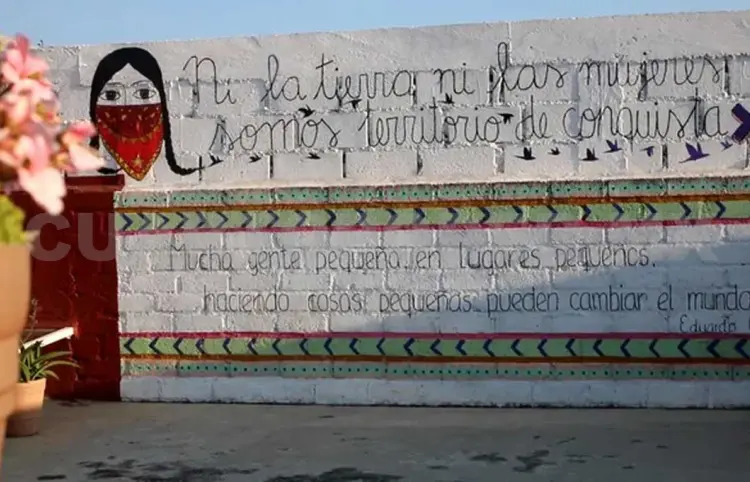 Ni la tierra ni las mujeres
somos territorio de conquista
Mucha gente pequeña en lugares pequeños,
haciendo cosas pequeñas pueden cambiar el mundo
Eduardo